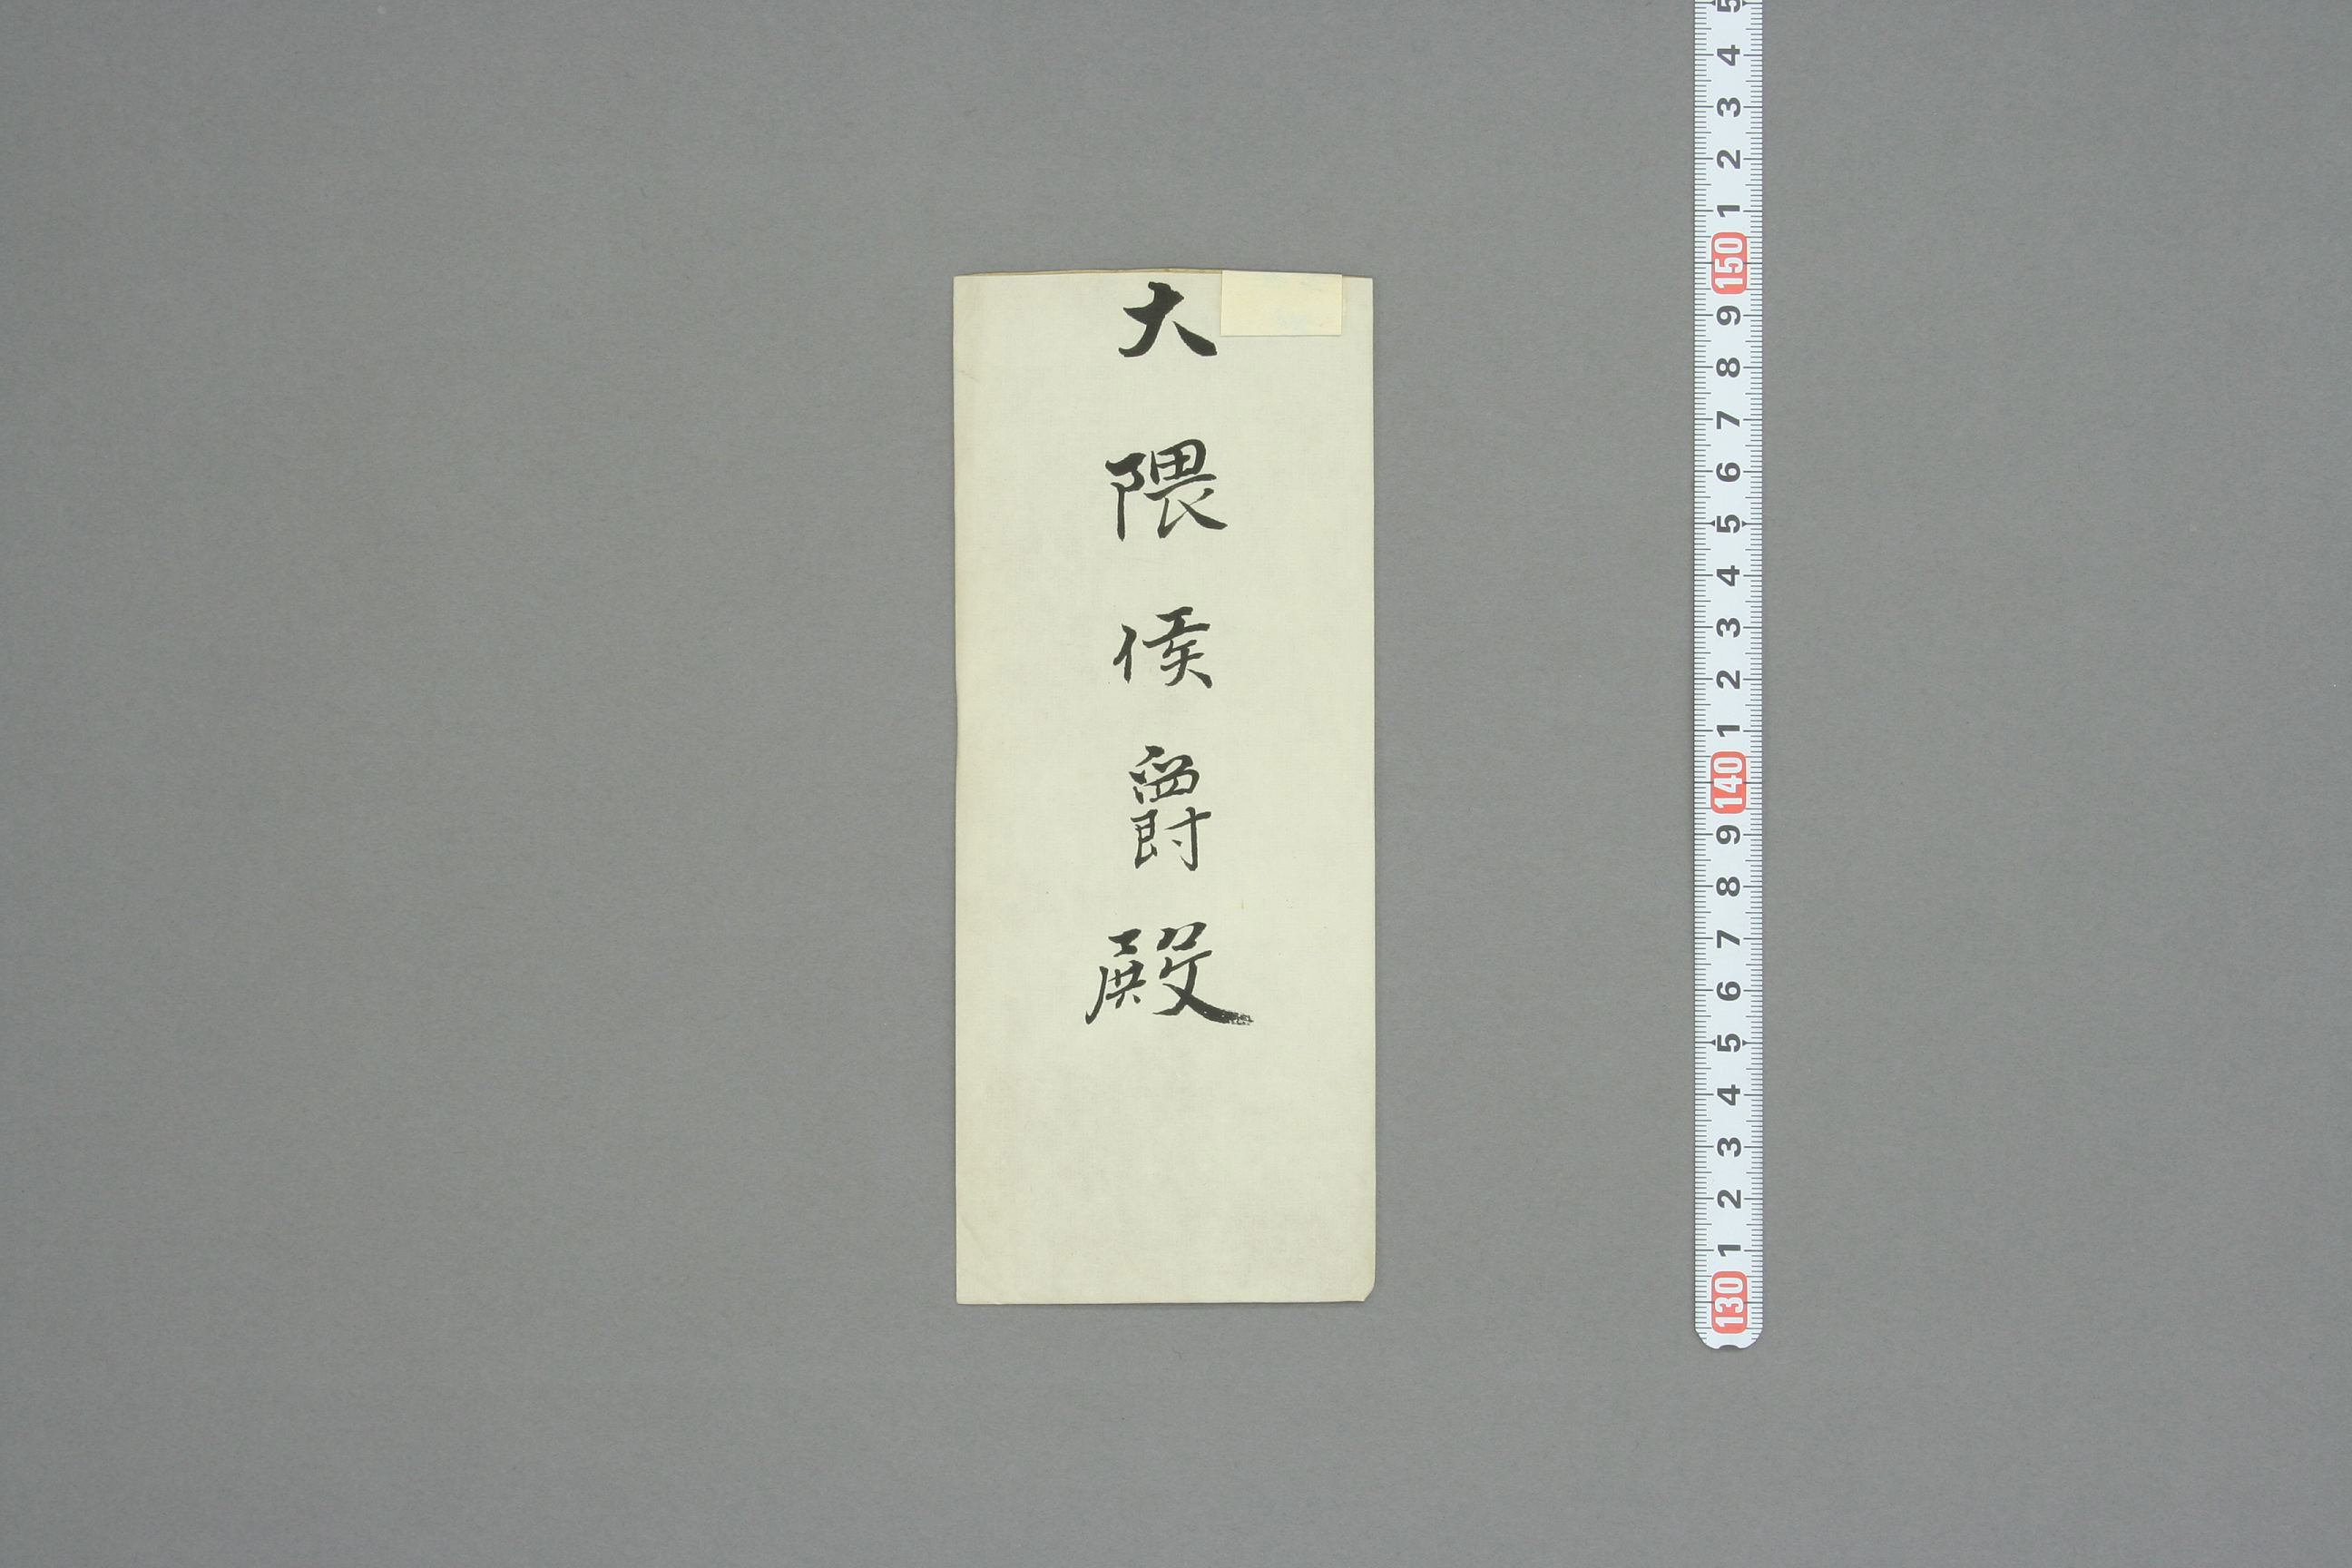 大隈侯爵殿
5
4
3
2
1
150
9
8
7
6
5
4
3
2
1
140
9
8
7
6
5
4
3
2
1
130